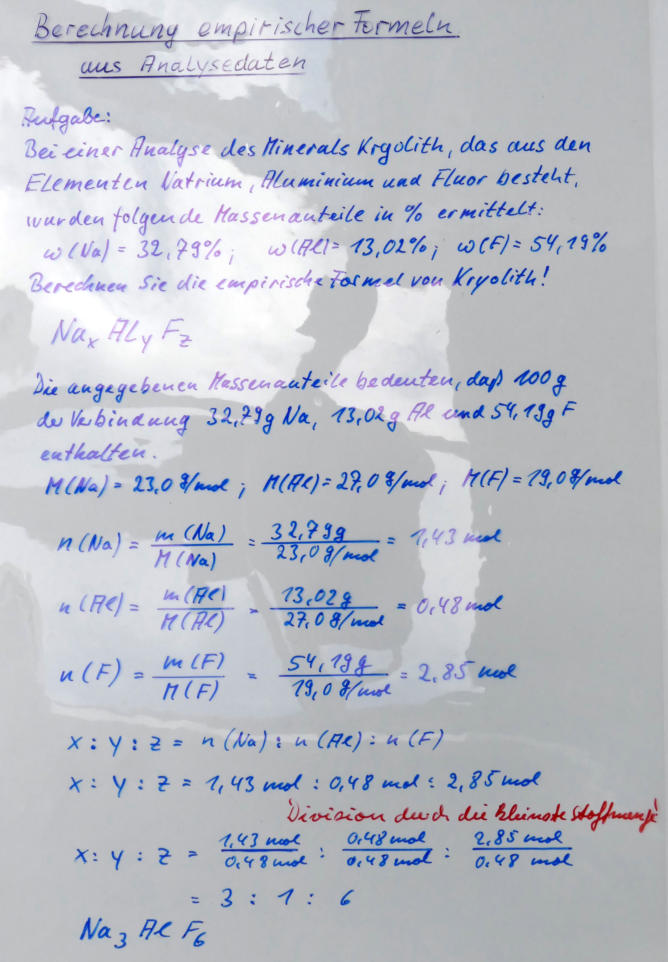 Berechnung empirischer Formeln
aus Analysedaten
Aufgabe:
Bei einer Analyse des Minerals Kryolith, das aus den
Elementen Natrium, Aluminium und Fluor besteht,
wurden folgende Massenanteile in % ermittelt:
w(Na) = 32,79%; w(Al) = 13,02%; w(F) = 54,19%
Berechnen Sie die empirische Formel von Kryolith!
NaₓAlᵧF_z
Die angegebenen Massenanteile bedeuten, daß 100g
der Verbindung 32,79g Na, 13,02g Al und 54,19g F
enthalten.
M(Na) = 23,0 g/mol; M(Al) = 27,0 g/mol; M(F) = 19,0 g/mol
n(Na) = m(Na)/M(Na) = 32,79g/23,0 g/mol = 1,43 mol
n(Al) = m(Al)/M(Al) = 13,02g/27,0 g/mol = 0,48 mol
n(F) = m(F)/M(F) = 54,19g/19,0 g/mol = 2,85 mol
x : y : z = n(Na) : n(Al) : n(F)
x : y : z = 1,43 mol : 0,48 mol : 2,85 mol
Division durch die kleinste Stoffmenge
x : y : z = 1,43 mol/0,48 mol : 0,48 mol/0,48 mol : 2,85 mol/0,48 mol
= 3 : 1 : 6
Na₃AlF₆